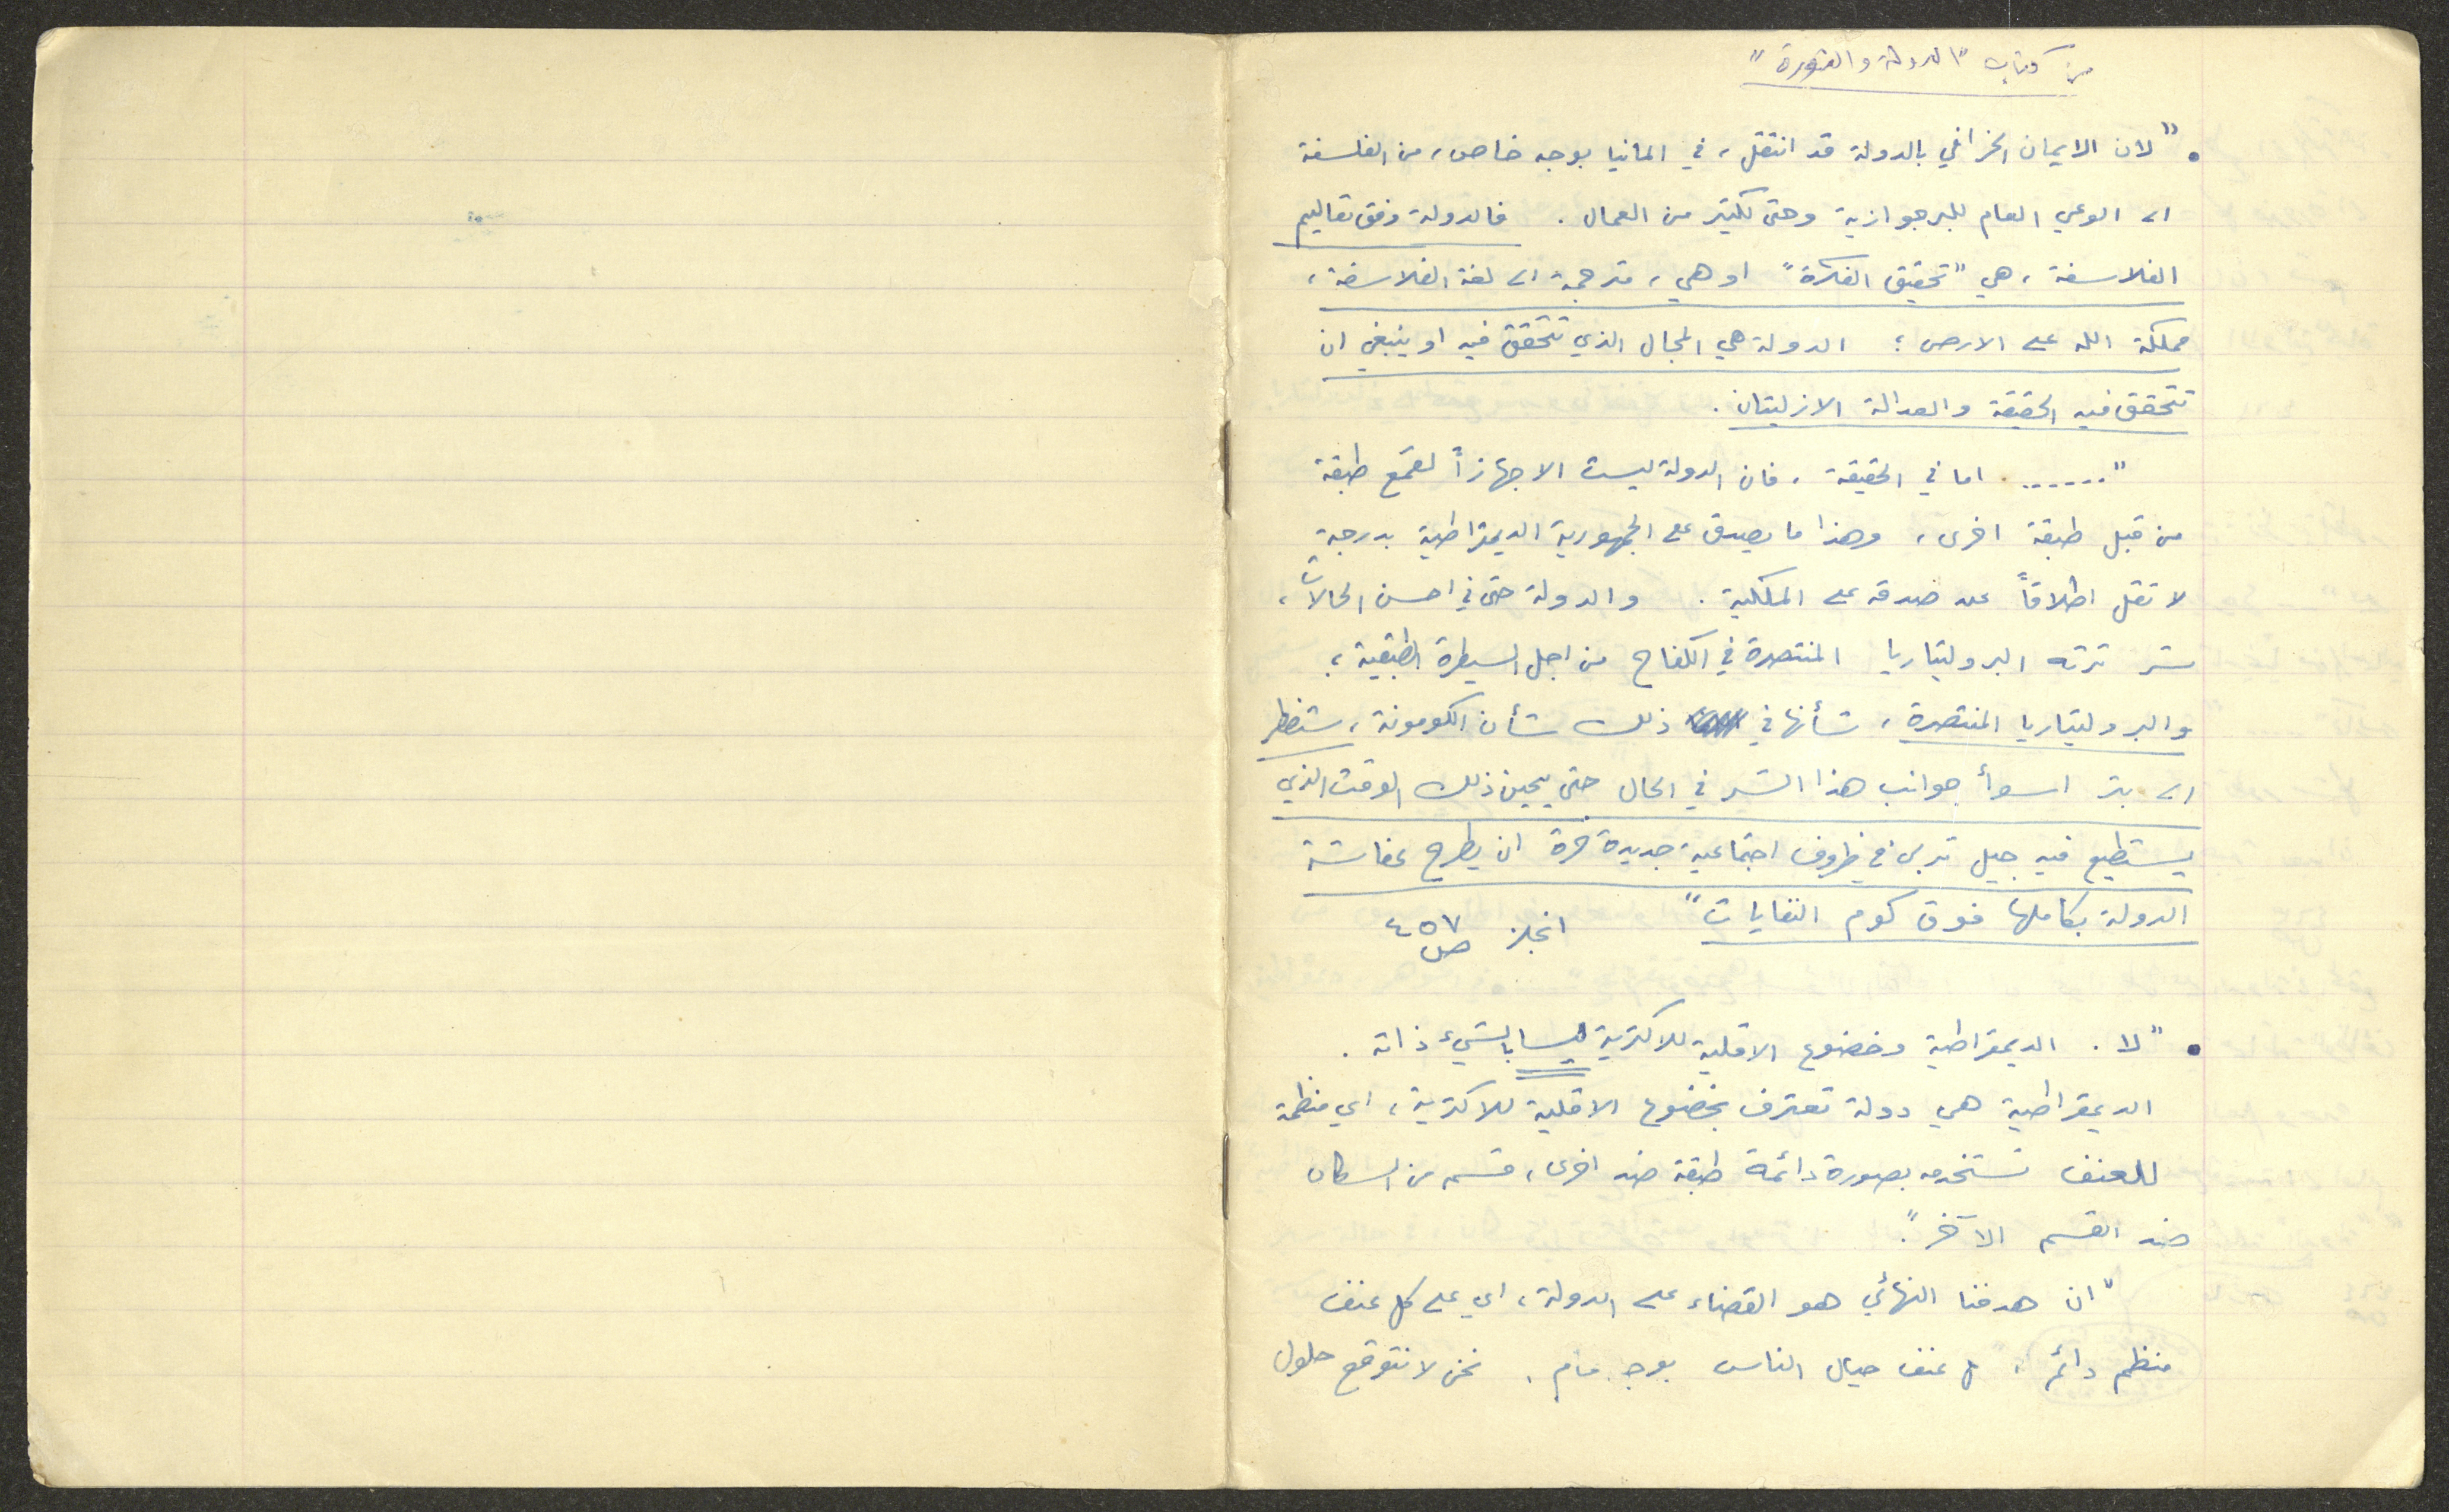 من كتاب "الدولة والثورة"
• "لان الايمان الخرافي بالدولة قد انتقل، في المانيا بوجه خاص، من الفلسفة
الى الوعي العام للبرجوازية وحتى لكثير من العمال. فالدولة وفق تعاليم
الفلاسفة، هي "تحقيق الفكرة" او هي، مترجمة الى لغة الفلاسفة،
مملكة الله على الارض؛ الدولة هي المجال الذي تتحقق فيه او ينبغي ان
تتحقق فيه الحقيقة والعدالة الازليتان.
"....... اما في الحقيقة، فان الدولة ليست الا جهازاً لقمع طبقة
من قبل طبقة اخرى، وهذا ما يصدق على الجمهورية الديمقراطية بدرجة
لا تقل اطلاقاً عند صدقه على الملكية. والدولة حتى في احسن الحالات،
شر ترثه البروليتاريا المنتصرة في الكفاح من اجل السيطرة الطبقية؛
والبروليتاريا المنتصرة، شأنها في ذلك شأن الكومونة، ستضطر
الى بتر اسوأ جوانب هذا الشر في الحال حتى يحين ذلك الوقت الذي
يستطيع فيه جيل تربى في ظروف اجتماعية جديدة حرة ان يطرح عفاشة
الدولة بكاملها فوق كوم النفايات" انجلز ص ٤٥٧
• "لا. الديمقراطية وخضوع الاقلية للاكثرية ليسا بالشيء ذاته.
الديمقراطية هي دولة تعترف بخضوع الاقلية للاكثرية، اي منظمة
للعنف تستخدمه بصورة دائمة طبقة ضد اخرى، قسم من السكان
ضد القسم الآخر".
"ان هدفنا النهائي هو القضاء على الدولة، اي على كل عنف
منظم دائم، كل عنف حيال الناس بوجه عام. نحن لا نتوقع حلول